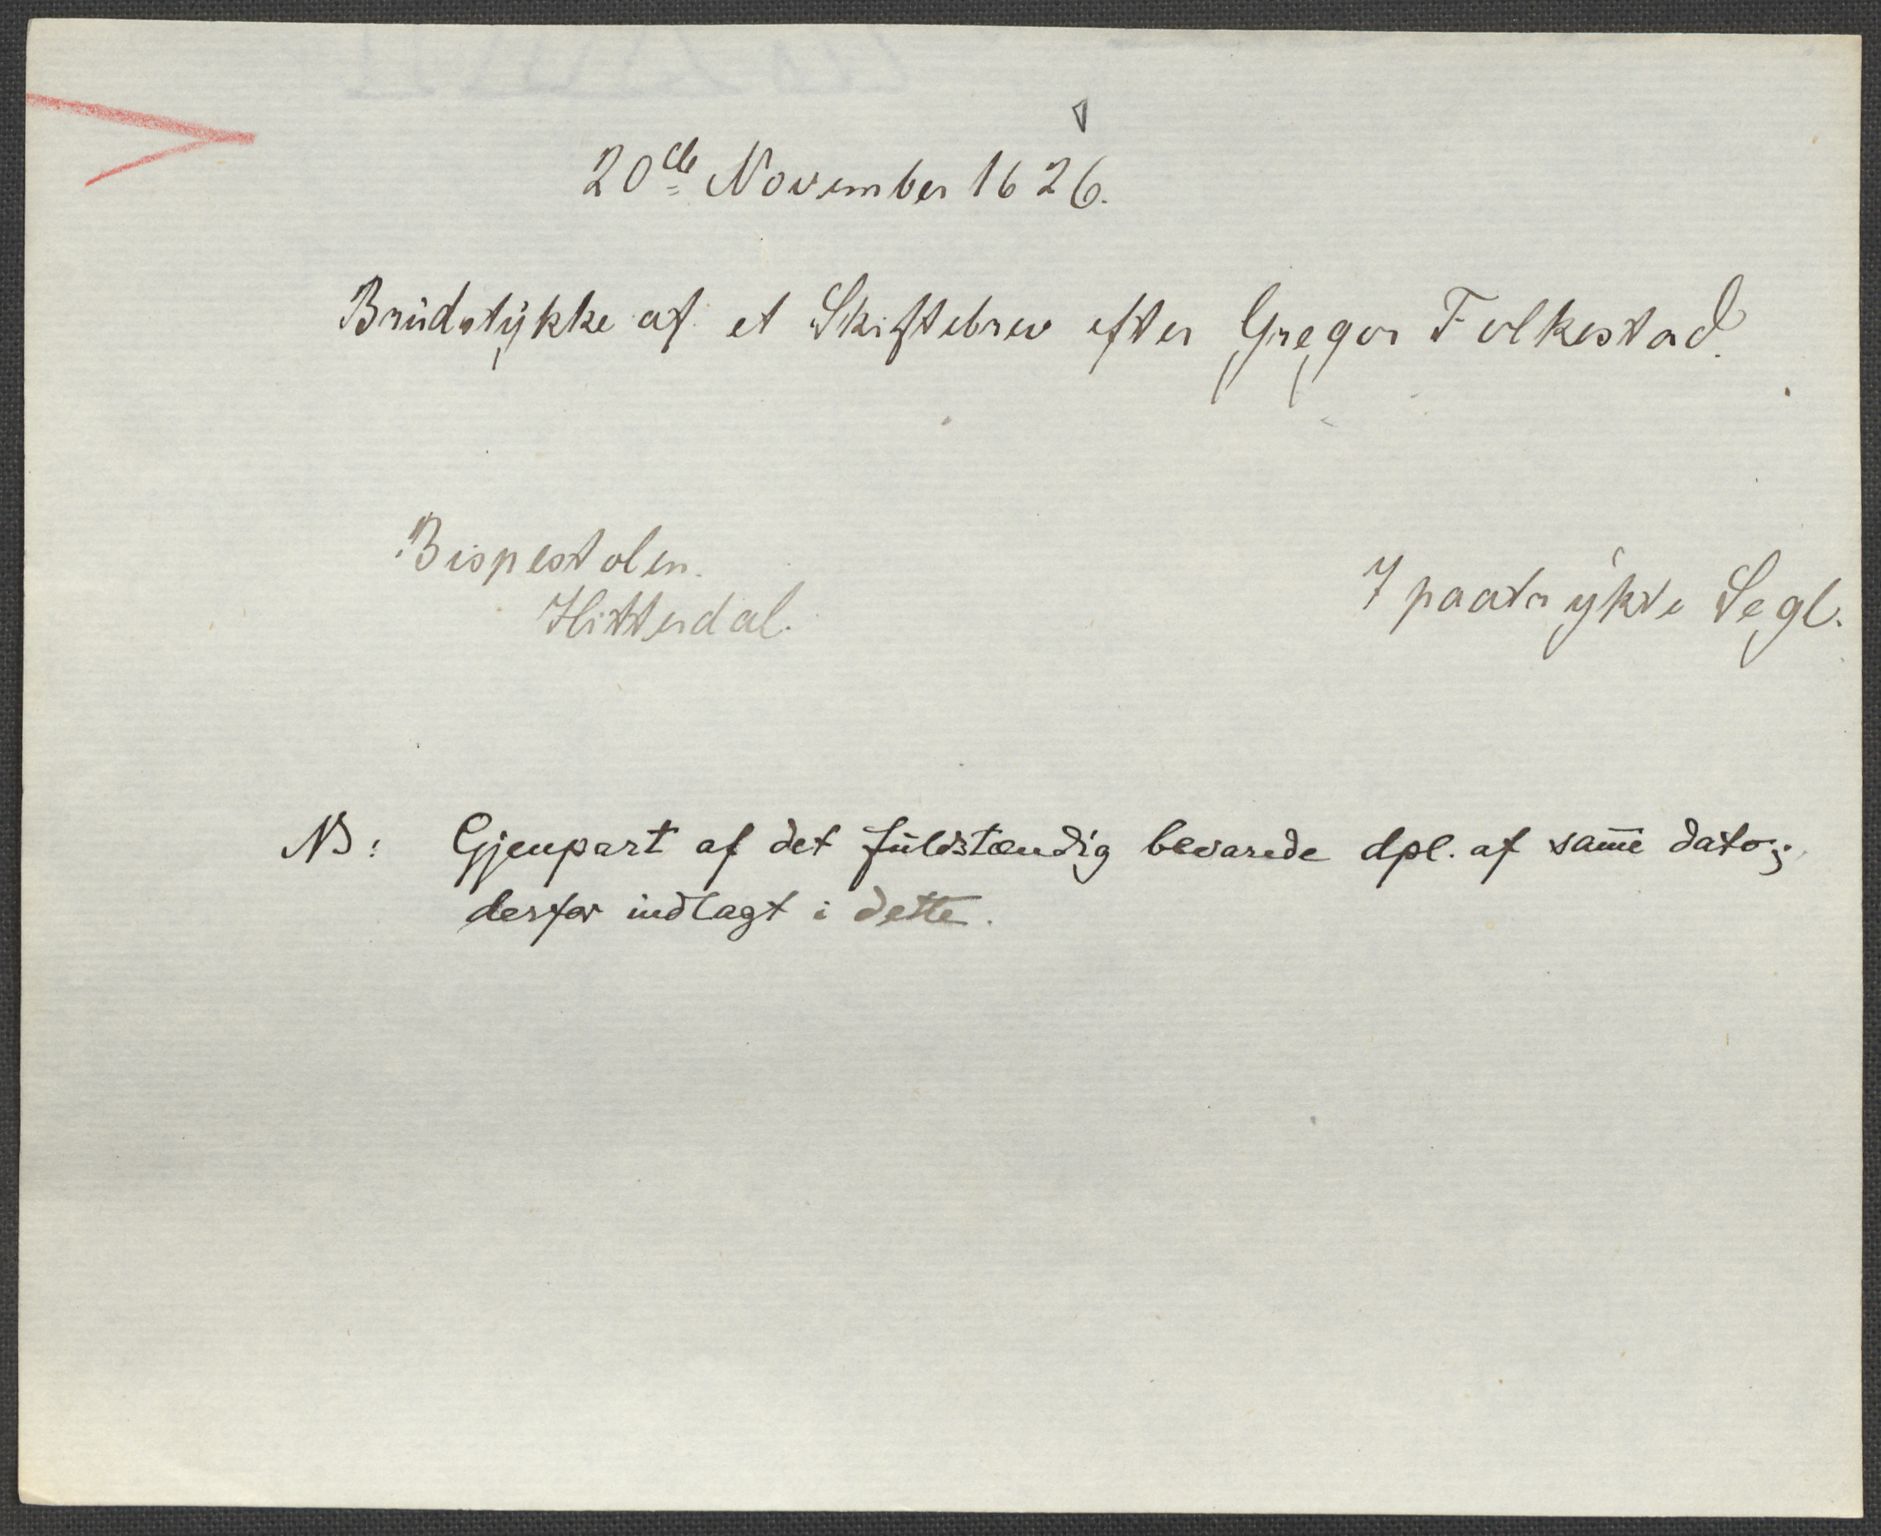 20de November 1626.
Brudstykke af et Skiftebrev efter Gregor Folkestad.
Bispestolen.
Hitterdal.
7 paatrykte Segl.
NB: Gjenpart af det fuldstændig bevarede dpl. af samme dato;
derfor indlagt i dette.